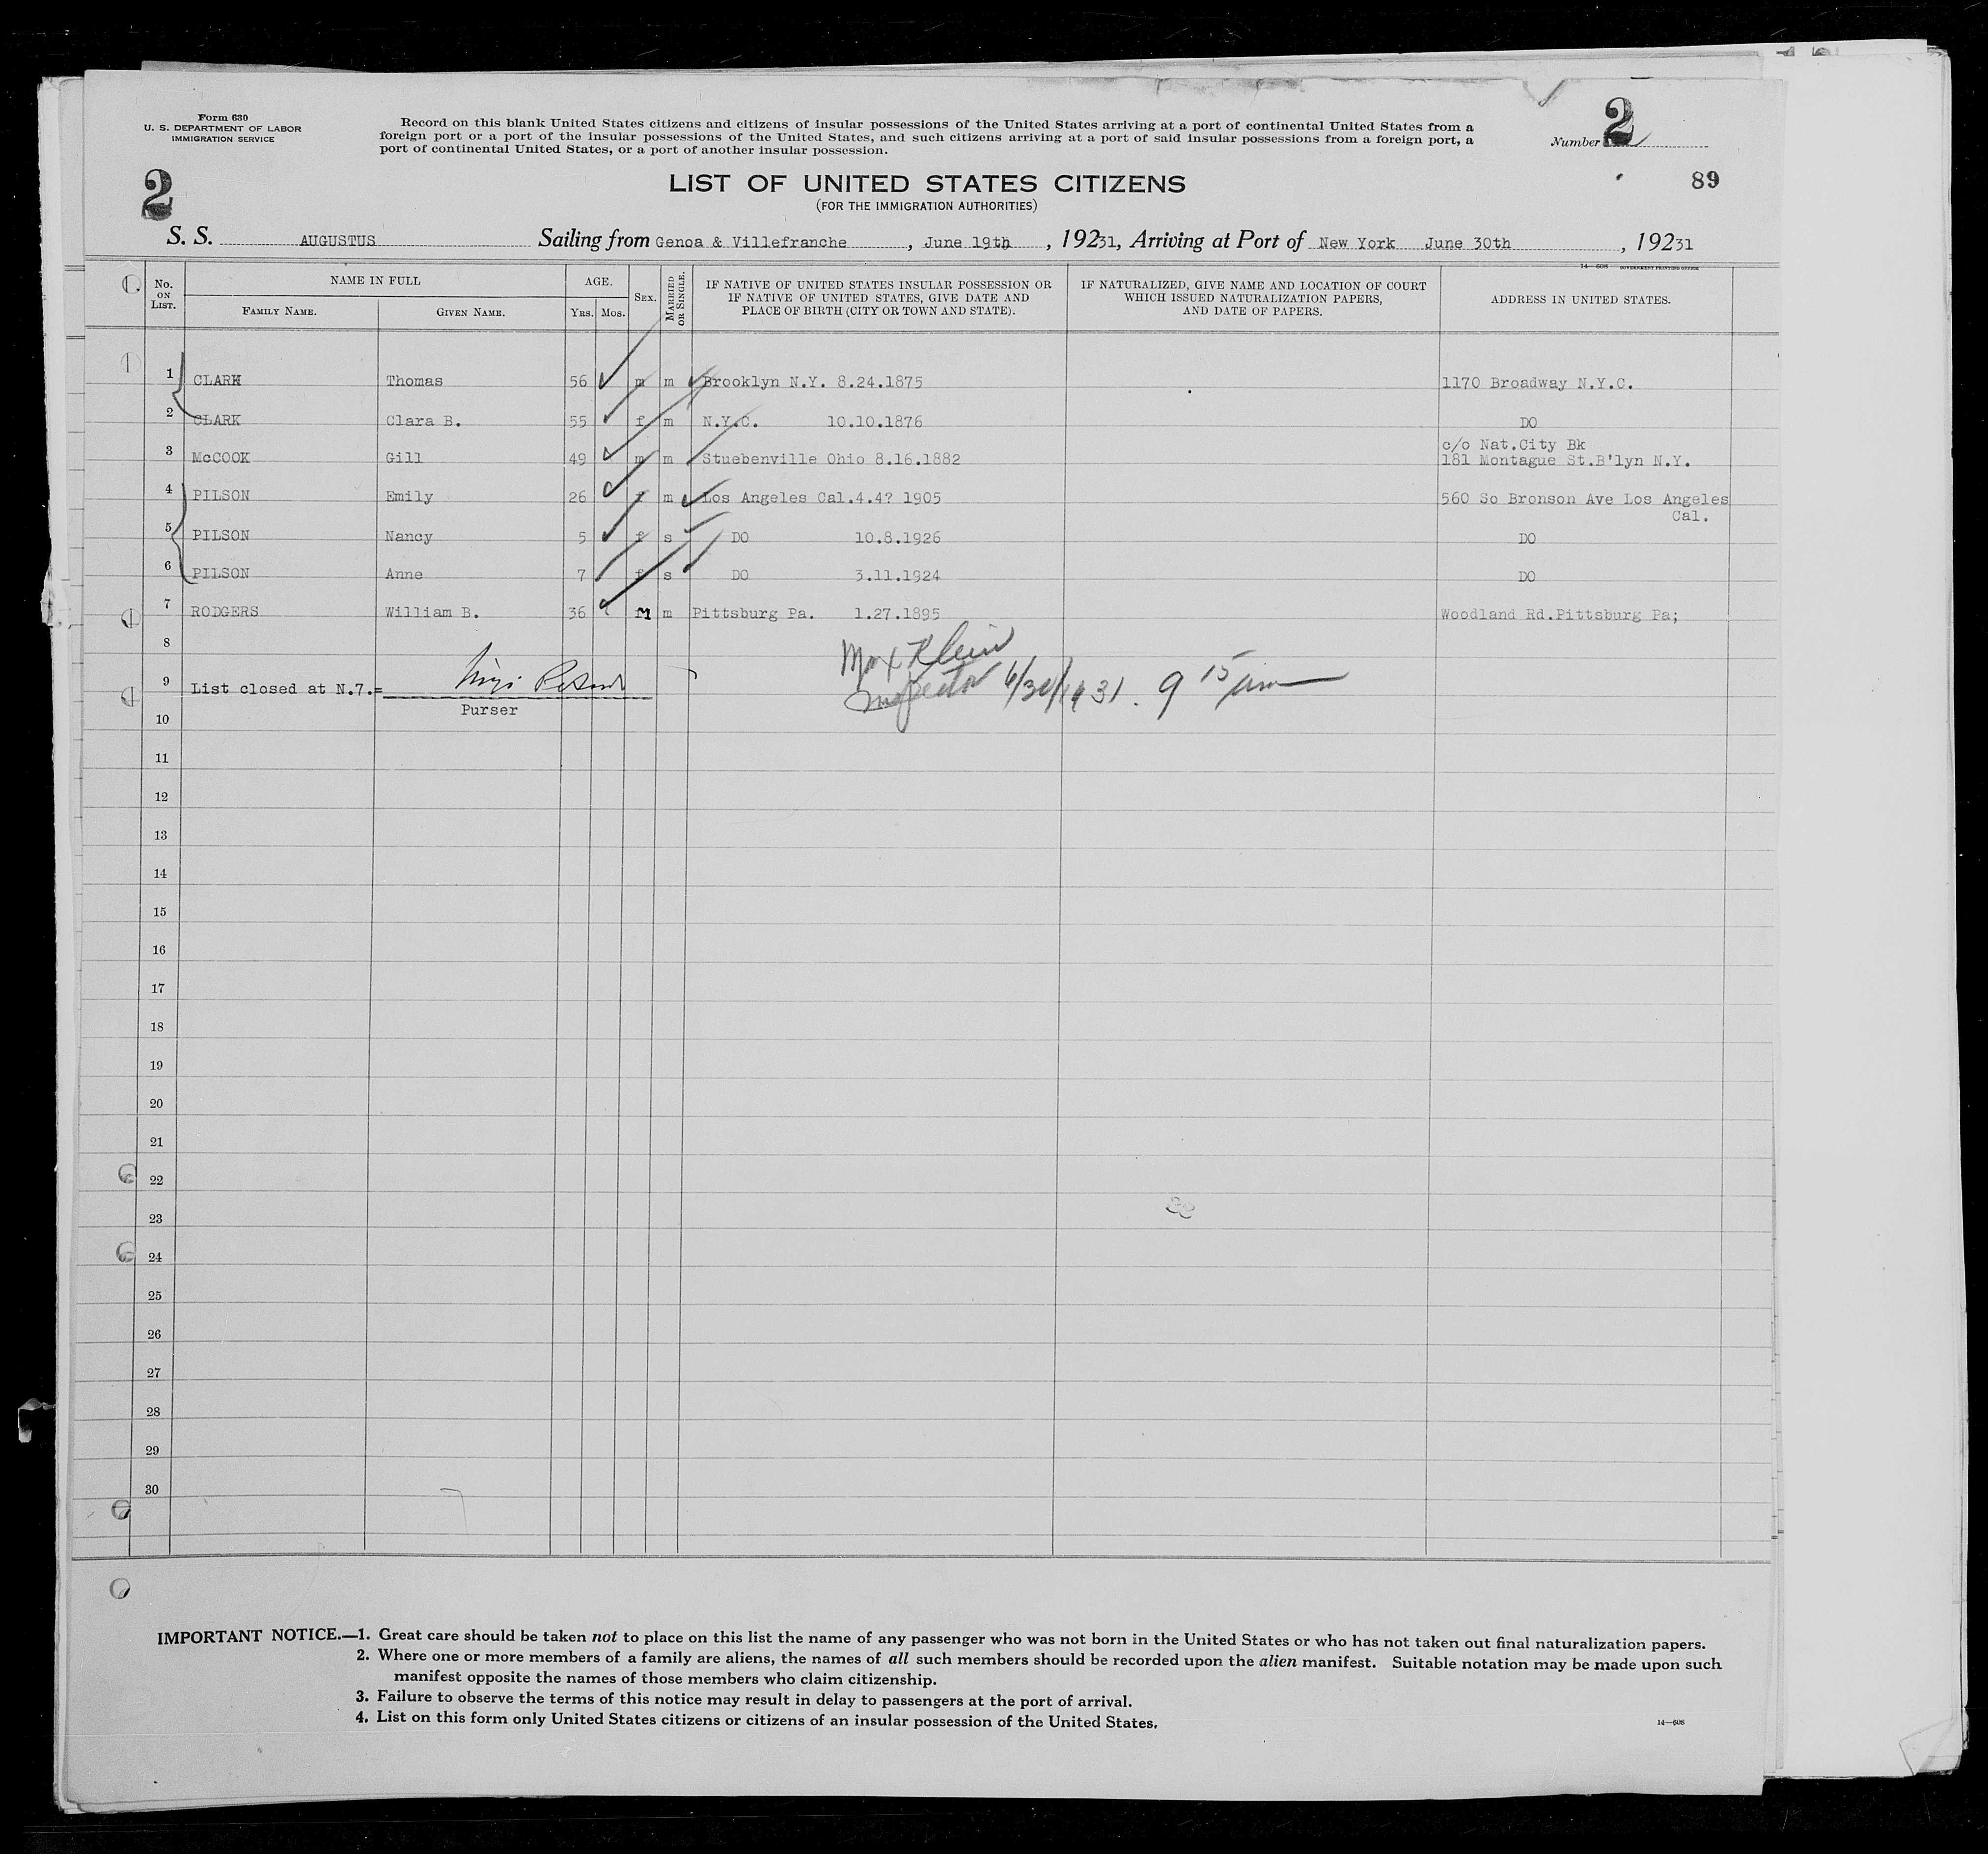 Form 630
U. S. DEPARTMENT OF LABOR
IMMIGRATION SERVICE
Record on this blank United States citizens and citizens of insular possessions of the United States arriving at a port of continental United States from a
foreign port or a port of the insular possessions of the United States, and such citizens arriving at a port of said insular possessions from a foreign port, a
port of continental United States, or a port of another insular possession.
Number 2
2
LIST OF UNITED STATES CITIZENS
(FOR THE IMMIGRATION AUTHORITIES)
89
S. S. AUGUSTUS Sailing from Genoa & Villefranche, June 19th, 19231, Arriving at Port of New York June 30th, 19231
14—608 GOVERNMENT PRINTING OFFICE
No. ON LIST.
NAME IN FULL
FAMILY NAME.
GIVEN NAME.
AGE.
YRS. MOS.
SEX.
MARRIED OR SINGLE.
IF NATIVE OF UNITED STATES INSULAR POSSESSION OR
IF NATIVE OF UNITED STATES, GIVE DATE AND
PLACE OF BIRTH (CITY OR TOWN AND STATE).
IF NATURALIZED, GIVE NAME AND LOCATION OF COURT
WHICH ISSUED NATURALIZATION PAPERS,
AND DATE OF PAPERS.
ADDRESS IN UNITED STATES.
1 CLARK Thomas 56 m m Brooklyn N.Y. 8.24.1875 1170 Broadway N.Y.C.
2 CLARK Clara B. 55 f m N.Y.C. 10.10.1876 DO
3 McCOOK Gill 49 m m Stuebenville Ohio 8.16.1882 c/o Nat.City Bk
181 Montague St.B'lyn N.Y.
4 PILSON Emily 26 f m Los Angeles Cal.4.4? 1905 560 So Bronson Ave Los Angeles
Cal.
5 PILSON Nancy 5 f s DO 10.8.1926 DO
6 PILSON Anne 7 f s DO 3.11.1924 DO
7 RODGERS William B. 36 M m Pittsburg Pa. 1.27.1895 Woodland Rd.Pittsburg Pa;
8
Max Klein
9 List closed at N.7.=
Inspector 6/30/1931. 9 15 am
Purser
10
11
12
13
14
15
16
17
18
19
20
21
22
23
24
25
26
27
28
29
30
IMPORTANT NOTICE.—1. Great care should be taken not to place on this list the name of any passenger who was not born in the United States or who has not taken out final naturalization papers.
2. Where one or more members of a family are aliens, the names of all such members should be recorded upon the alien manifest. Suitable notation may be made upon such
manifest opposite the names of those members who claim citizenship.
3. Failure to observe the terms of this notice may result in delay to passengers at the port of arrival.
4. List on this form only United States citizens or citizens of an insular possession of the United States.
14—608